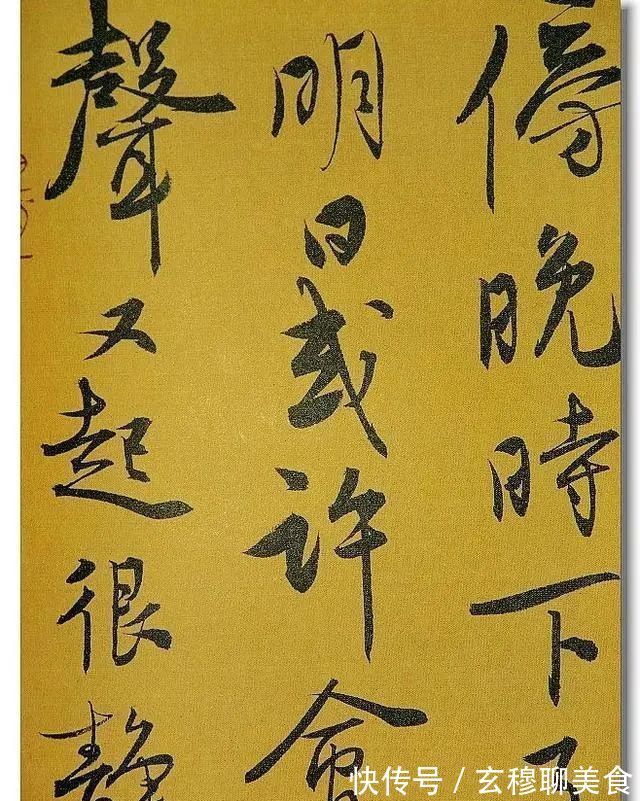 傍晚時下
明日或許會
聲又起很靜
快传号 / 玄穆聊美食